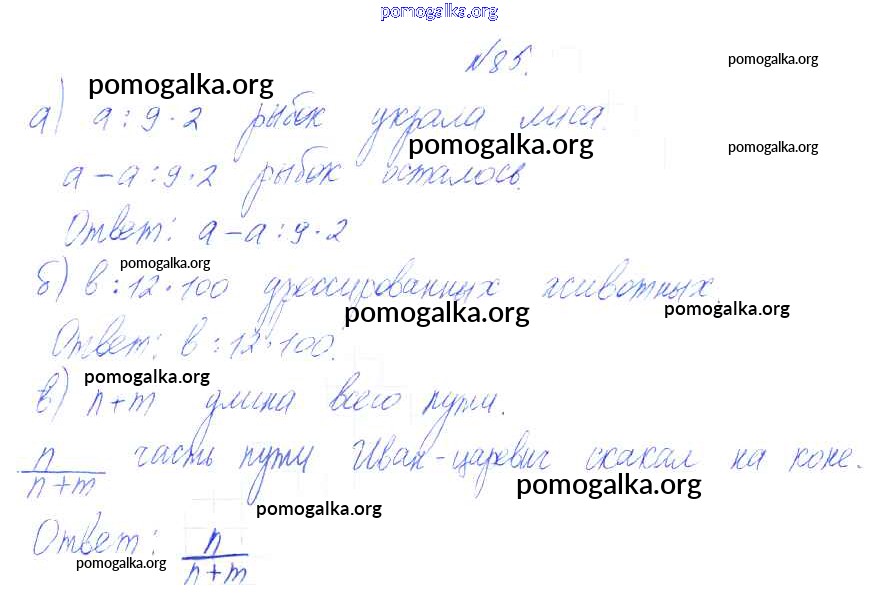 pomogalka.org
№85.
pomogalka.org
pomogalka.org
а) a : 9 · 2 рыбок украла лиса.
pomogalka.org
pomogalka.org
a – a : 9 · 2 рыбок осталось.
Ответ: a – a : 9 · 2
pomogalka.org
б) b : 12 · 100 дрессированных животных.
pomogalka.org
pomogalka.org
Ответ: b : 12 · 100.
pomogalka.org
в) n + m длина всего пути.
n/(n + m) часть пути Иван-царевич скакал на коне.
pomogalka.org
pomogalka.org
Ответ: n/(n + m)
pomogalka.org